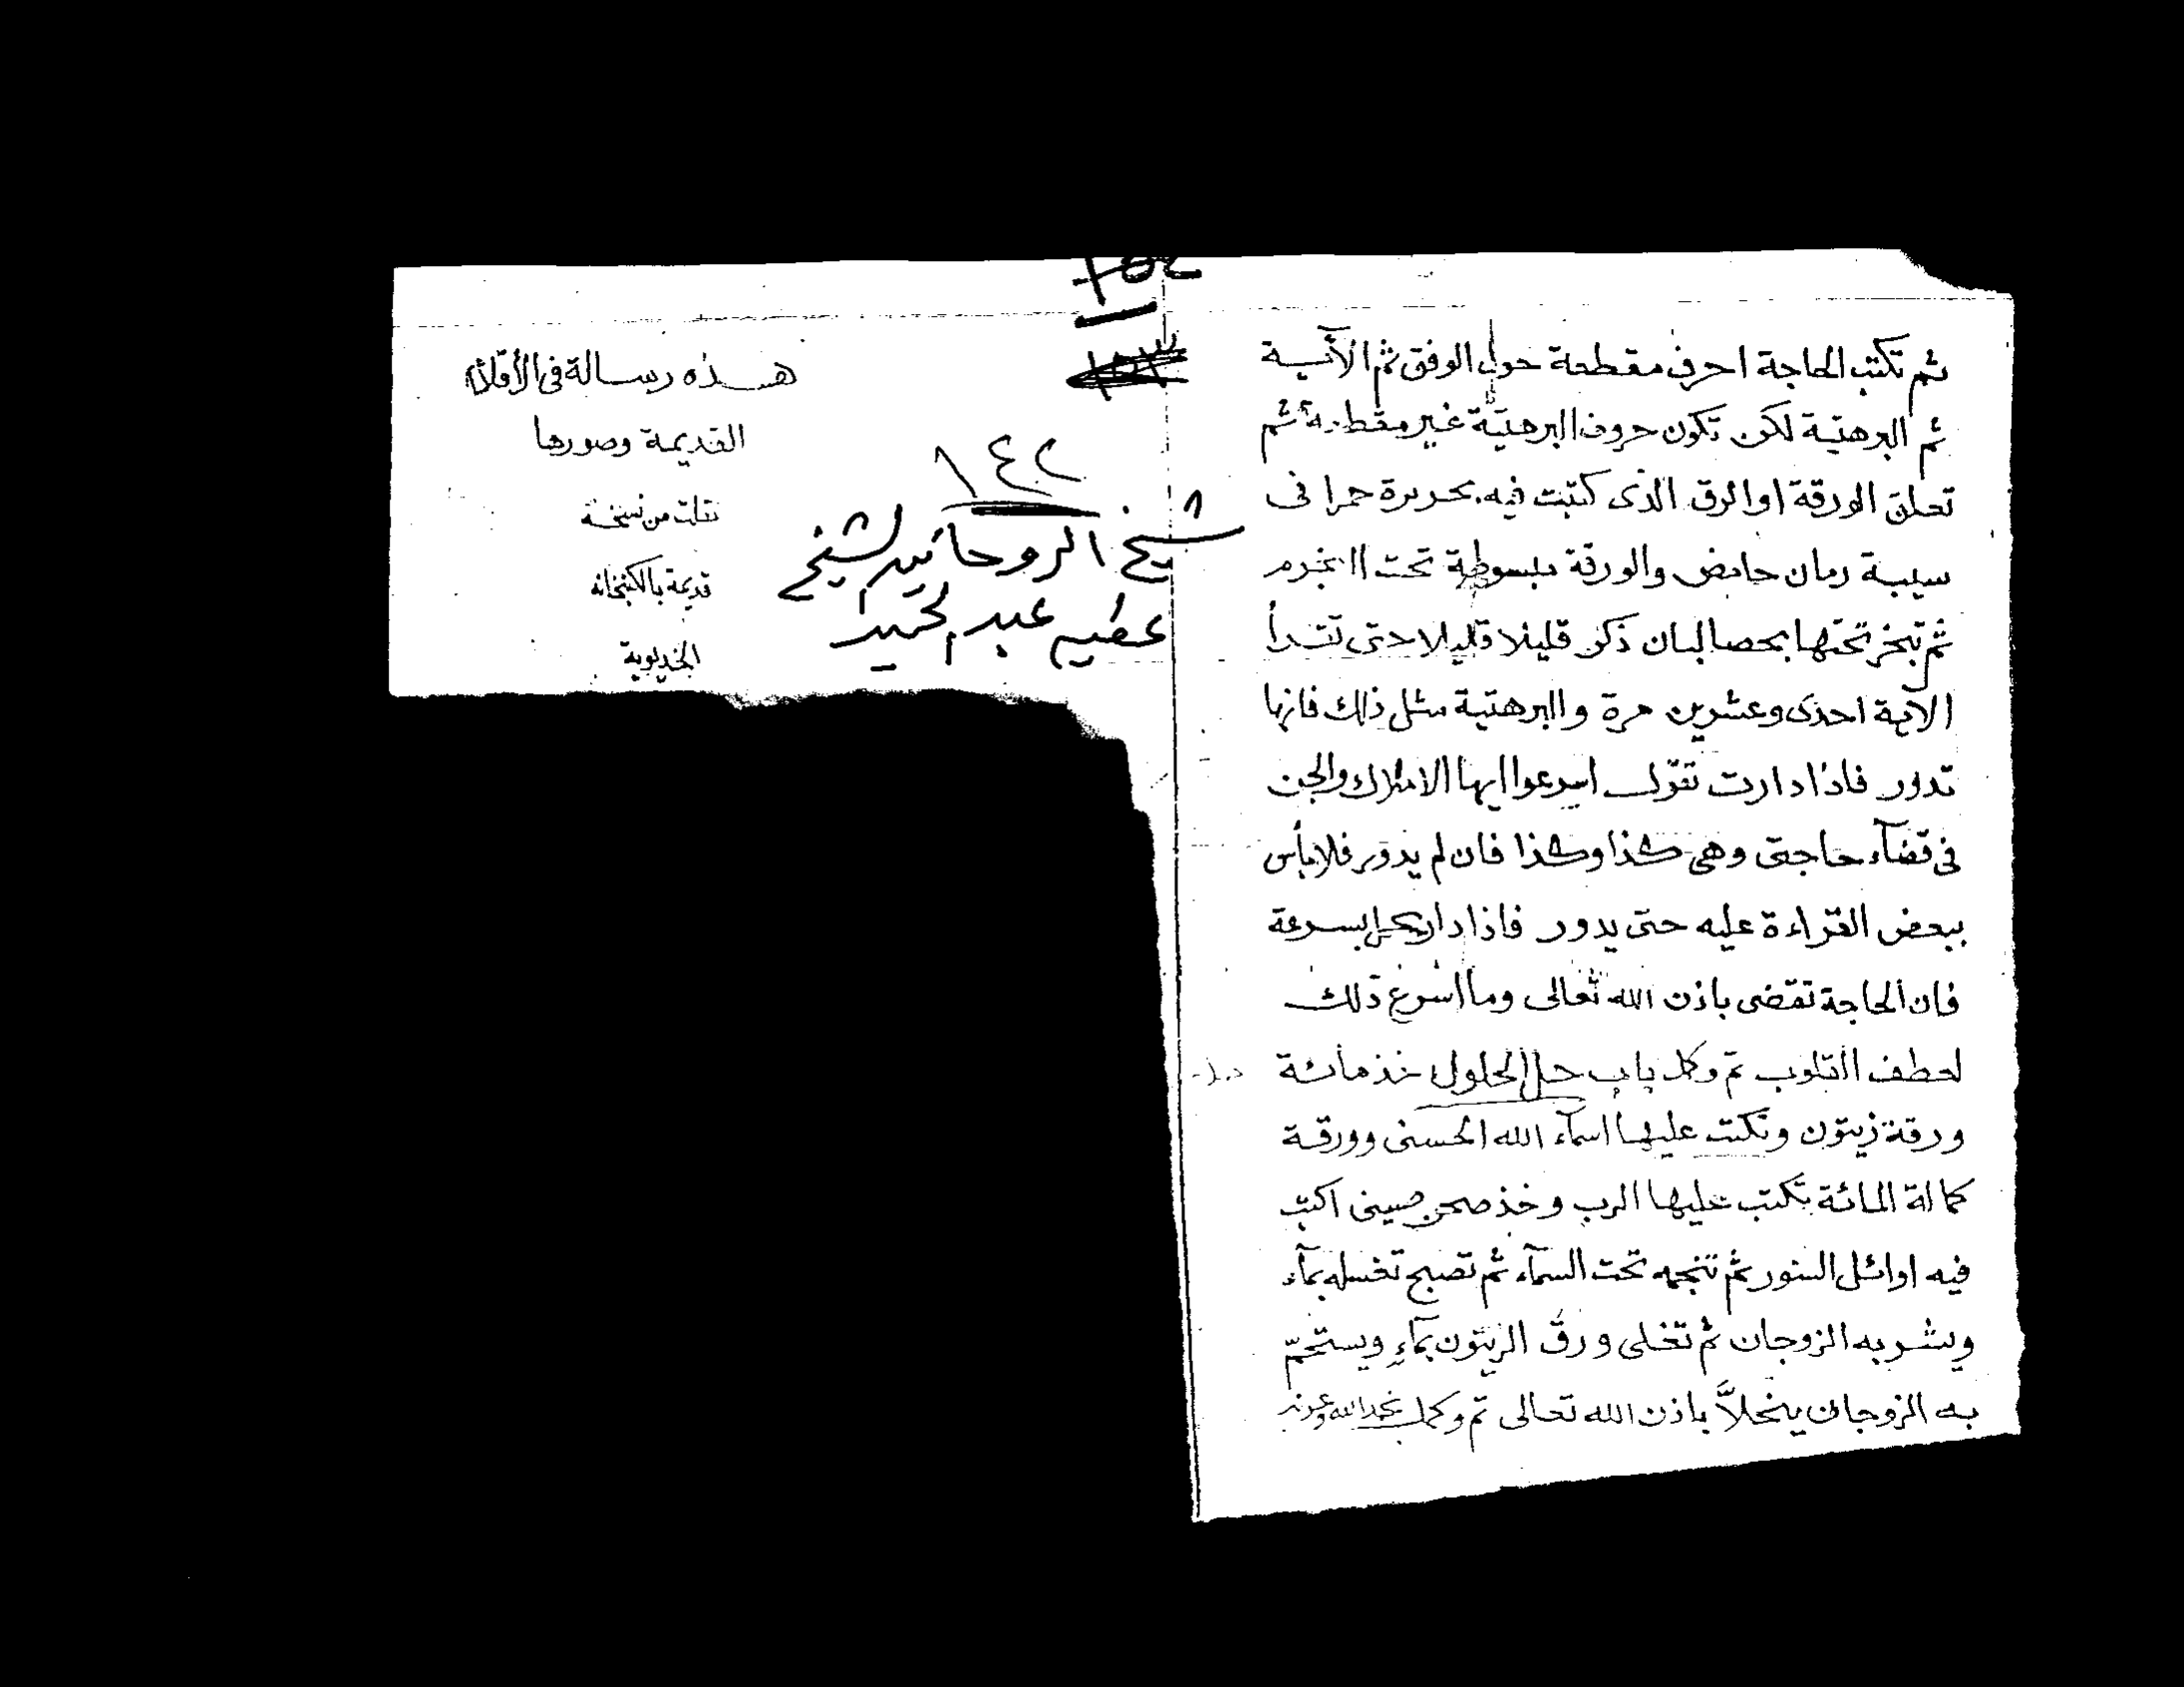 ثم تكتب الحاجة احرف مقطعة حول الوفق ثم الآية
ثم البرهتية لكن تكون حروف البرهتية غير مقطعة ثم
تعلق الورقة او الرق الذى كتبت فيه بحريرة حمرا فى
سيبة رمان حامض والورقة مبسوطة تحت النجوم
ثم تبخر تحتها بحصالبان ذكر قليلا قليلا حتى تقرأ
الآية احدى وعشرين مرة والبرهتية مثل ذلك فانها
تدور فاذا دارت تقول اسرعوا ايها الاملاك والجن
فى قضآء حاجتى وهى كذا وكذا فان لم يدور فلا بأس
ببعض القراءة عليه حتى يدور فاذا دار بسرعة
فان الحاجة تقضى باذن الله تعالى وما اسرع ذلك
لعطف القلوب تم وكل باب حل المحلول خذ مائة
ورقة زيتون وتكتب عليها اسمآء الله الحسنى وورقة
كمالة المائة تكتب عليها الرب وخذ صحن صينى اكتب
فيه اوائل السور ثم تنجمه تحت السمآء ثم تصبح تغسله بمآء
ويشربه الزوجان ثم تغلى ورق الزيتون بمآء ويستحمّ
به الزوجان ينحلاَّ باذن الله تعالى تم وكمل بحمد الله وعونه
١٤٢
شيخ الروحانيين الشيخ
عطيه عبد الحميد
هذه رسالة فى الأقلام
القديمة وصورها
نقلت من نسخة
قديمة بالكتبخانه
الخديوية